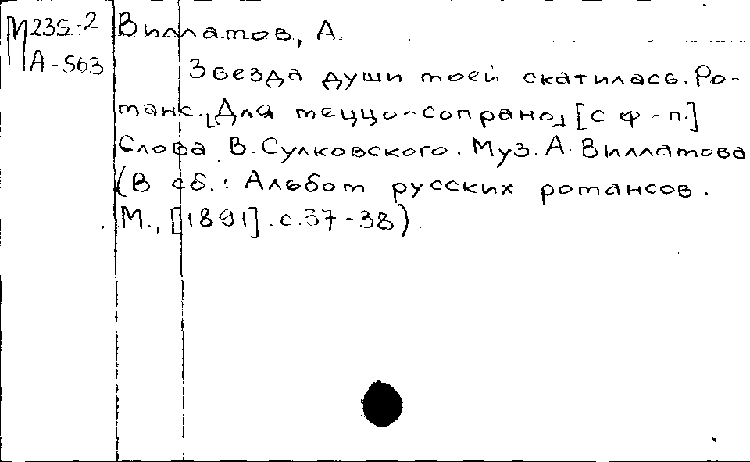 М235-2
А-563
Виллатов, А.
Звезда души моей скатилась. Ро-
манс. [Для меццо-сопрано] [с ф-п.]
Слова В. Сулковского. Муз. А. Виллатова
(В сб.: Альбом русских романсов.
М., [1891]. с. 37-38)